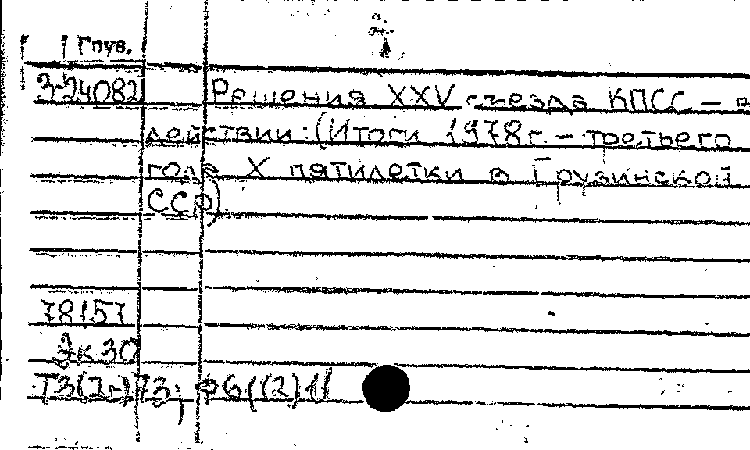 Гпув.
3-24082 Решения XXV съезда КПСС – в
действии: (Итоги 1978г. – третьего
года X пятилетки в Грузинской
ССР)
78157
Эк 30
Т3(2г)73; Ф6((2)11